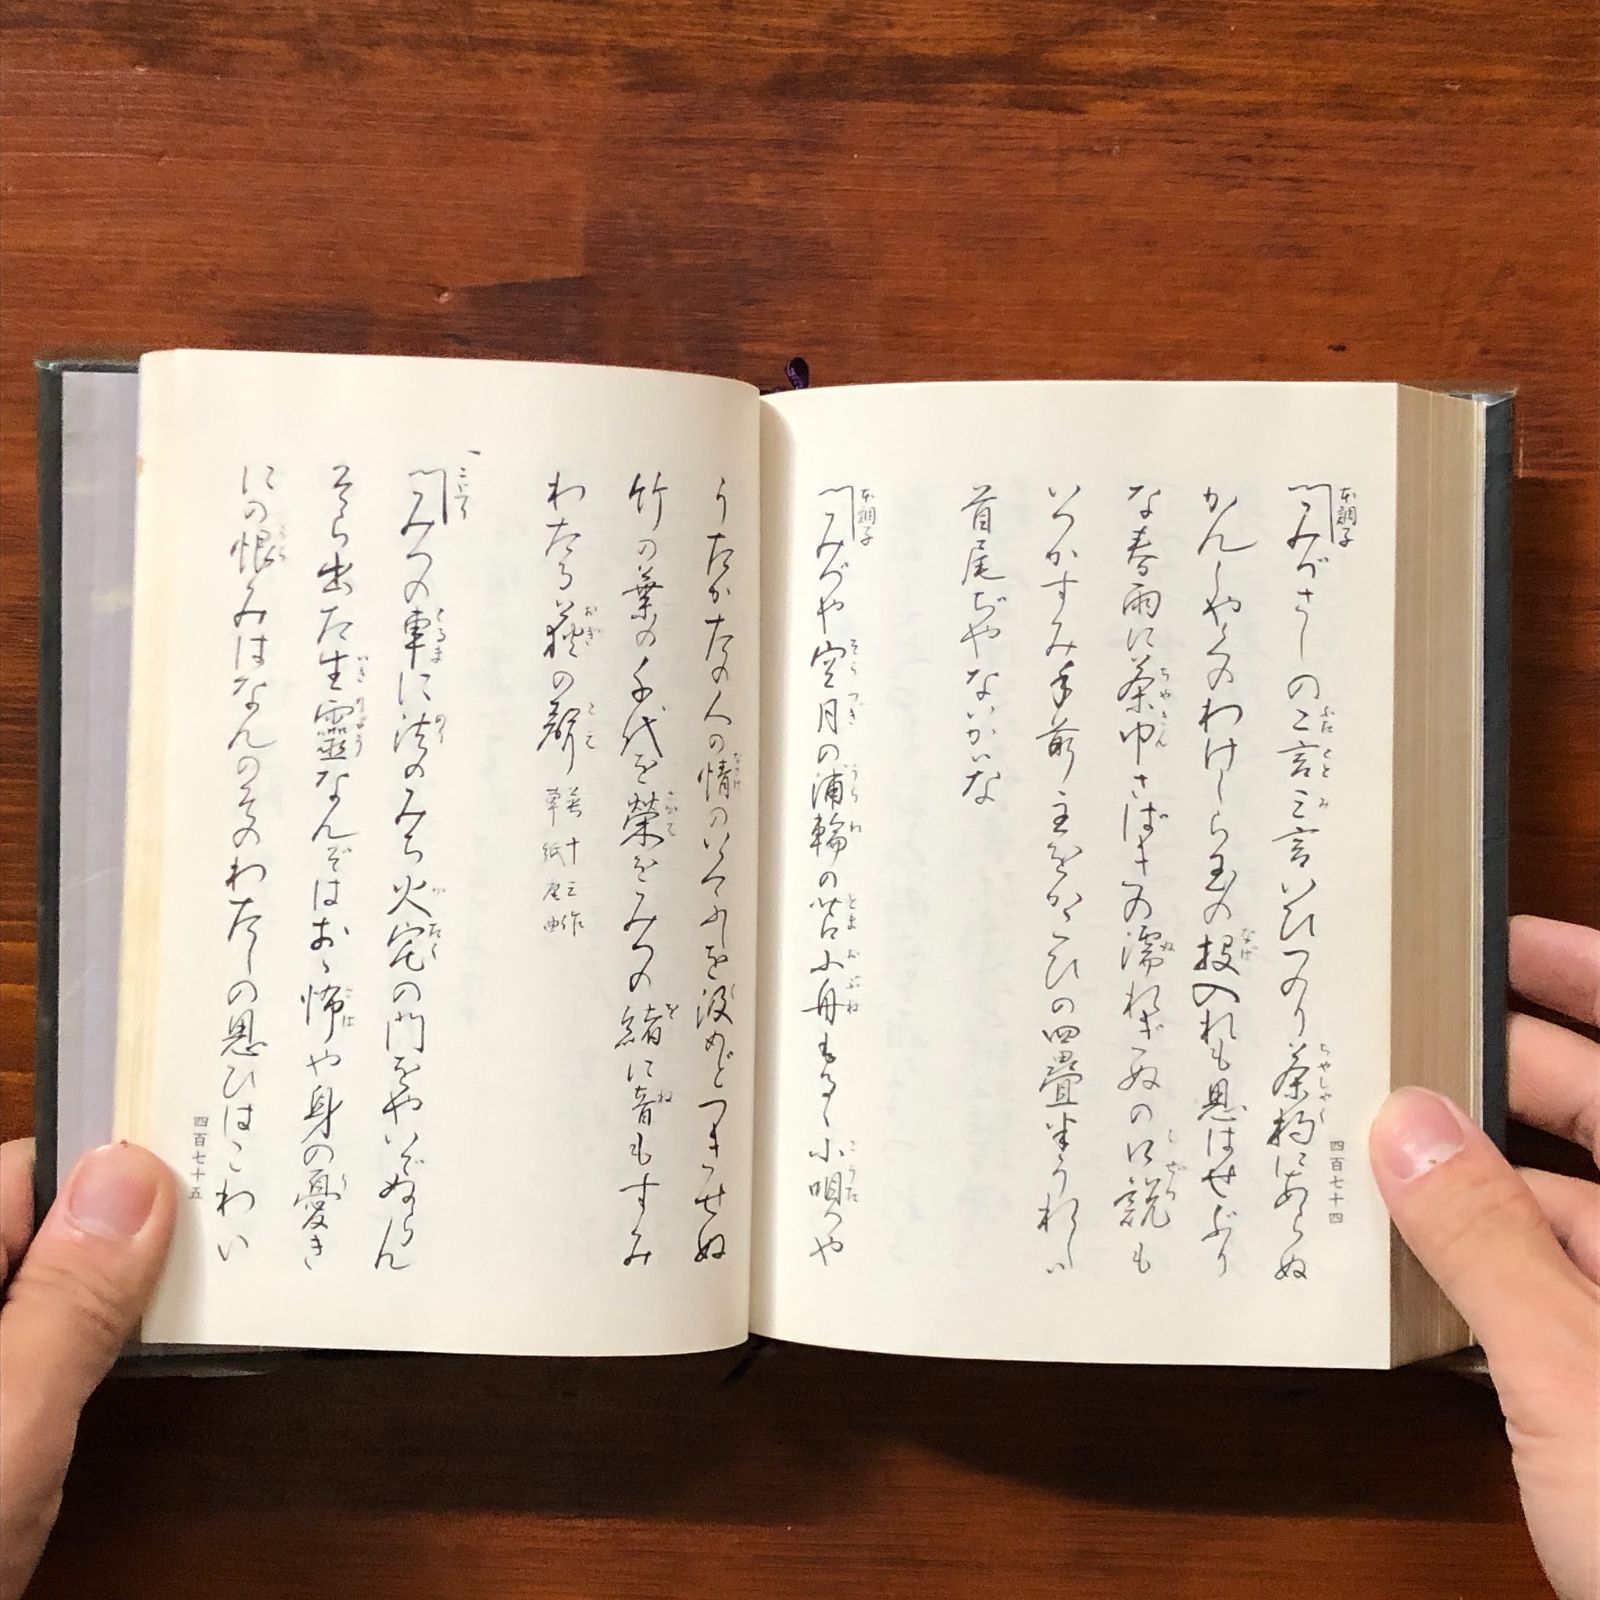 本調子
〽みづさしの二言三言いひつのり茶杓にあらぬ
かんしやくのわけしら玉の投入れも思はせぶり
な春雨に茶巾さばきの濡れぎぬの口説も
いつかすみ手前主をかこひの四畳半うれしい
首尾ぢやないかいな
本調子
〽みづや空月の浦輪の苫小舟もるゝ小唄や
四百七十四
うたかたの人の情のいくふしを汲めどつきせぬ
竹の葉の千代を榮をみつの緒に音もすみ
わたる荻の聲
英十三作
草紙庵曲
三下り
〽みつの車に法のみち火宅の門をやいでぬらん
そら出た生靈なんぞはおゝ怖や身の憂き
にの恨みはなんのそのわたしの思ひはこわい
四百七十五